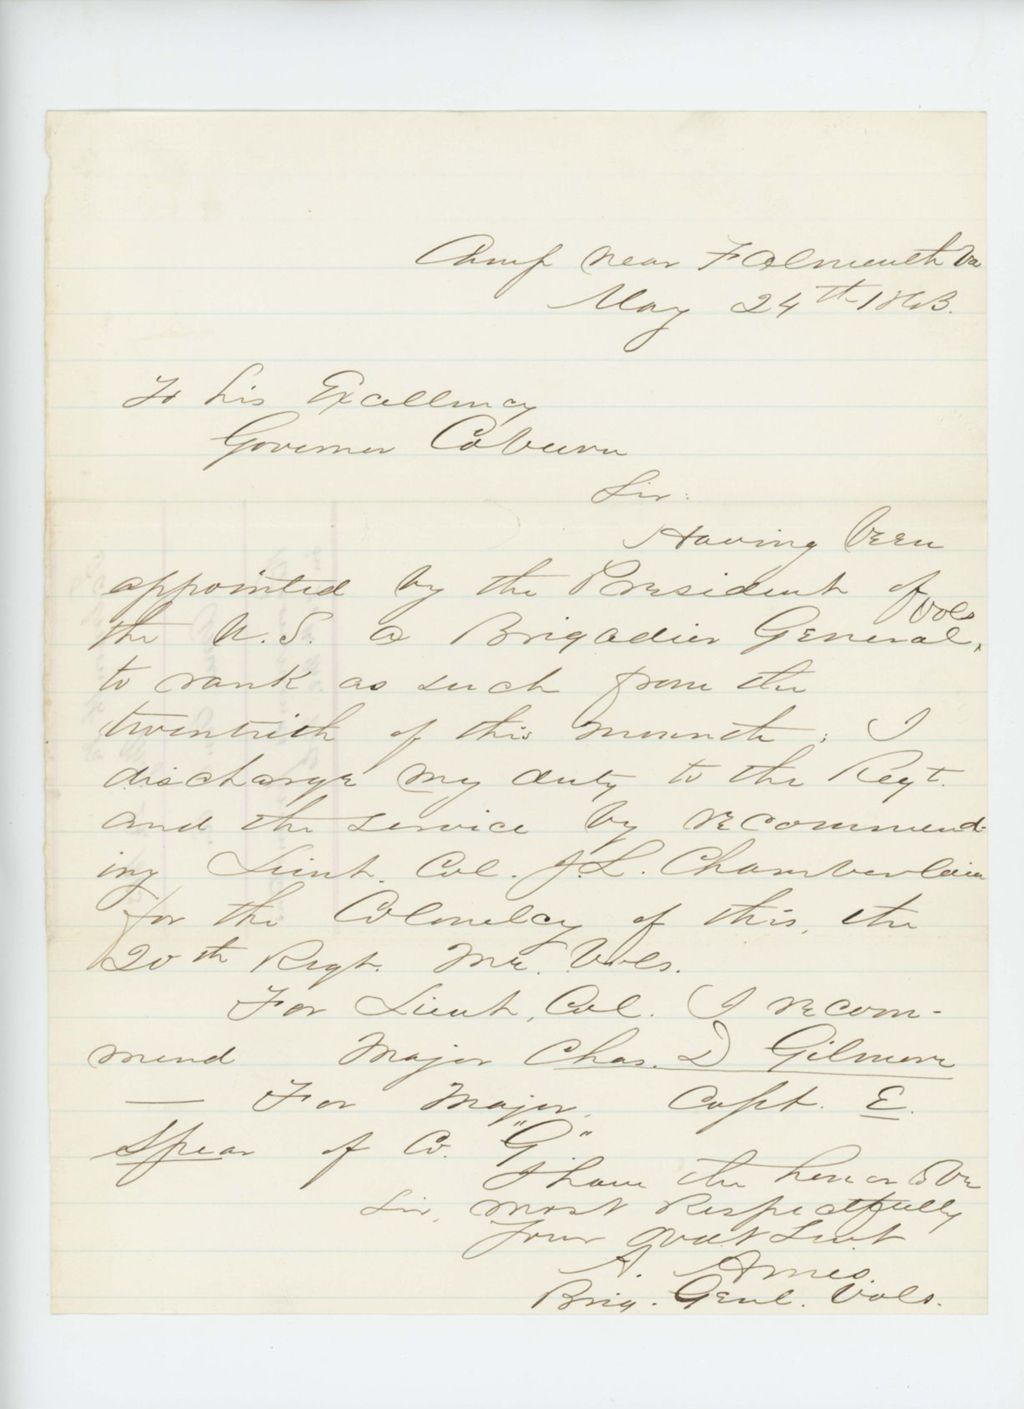 Camp near Falmouth Va
May 24th 1863.
To his Excellency
Governor Coburn
Sir:
Having been
appointed by the President of
the U.S. a Brigadier General, Vols
to rank as such from the
twentieth of this month; I
discharge my duty to the Regt.
and the service by recommend-
ing Lieut. Col. J. L. Chamberlain
for the Colonelcy of this, the
20th Regt. Me. Vols.
For Lieut. Col. I recom-
mend Major Chas. D Gilmore
— For Major, Capt. E.
Spear of Co. "G."
I have the honor to be
Sir, most Respectfully
Your obdt Servt
A. Ames.
Brig. Genl. Vols.